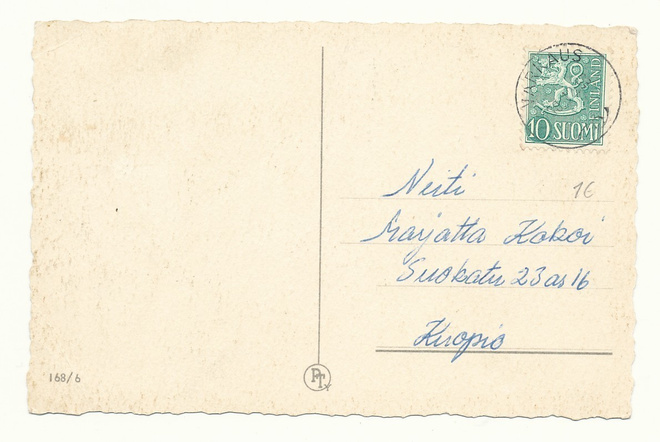 VARKAUS
FINLAND
10 SUOMI
Neiti
16
Marjatta Kokoi
Suokatu 23 as 16
Kuopio
168/6
PT